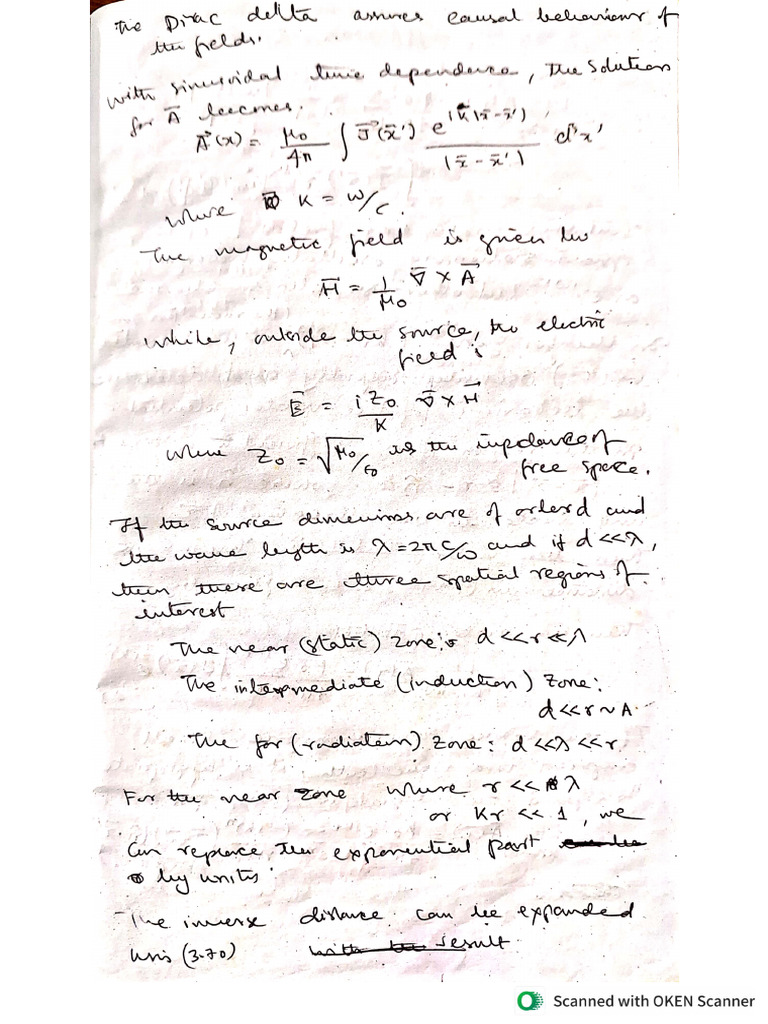 The Dirac delta assures causal behaviour of
the fields.
with sinusoidal time dependence, the solution
for A̅ becomes.
A⃗(x) = μ₀/4π ∫ J⃗(x̅') e^{iK|x̅-x̅'|} / |x̅-x̅'| d³x'
where K = ω/c.
The magnetic field is given by
H̅ = 1/μ₀ ∇̅ × A̅
while, outside the source, the electric
field is
E⃗ = iZ₀/K ∇̅ × H⃗
where Z₀ = √μ₀/ε₀ is the impedance of
free space.
If the source dimensions are of order d and
the wave length is λ = 2πc/ω and if d << λ,
then there are three spatial regions of
interest
The near (static) zone: d << r << λ
The intermediate (induction) zone:
d << r ~ λ
The far (radiation) zone: d << λ << r
For the near zone where r << λ
or Kr << 1, we
can replace the exponential part
by unity.
The inverse distance can be expanded
(3.70) result
Scanned with OKEN Scanner